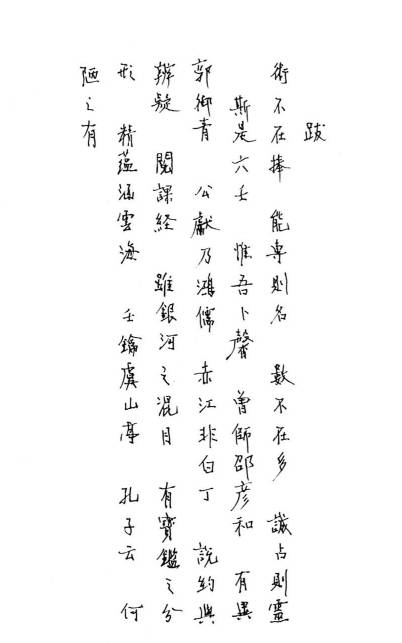 跋
術不在捧 能專則名 數不在多 誠占則靈
斯是六壬 惟吾卜馨 曾師邵彥和 有異
郭御青 公獻乃鴻儒 赤江非白丁 說約與
辨疑 閱課経 雖銀河之混目 有寶鑑之分
形 精蘊涵雲海 壬鑰虞山亭 孔子云 何
陋之有